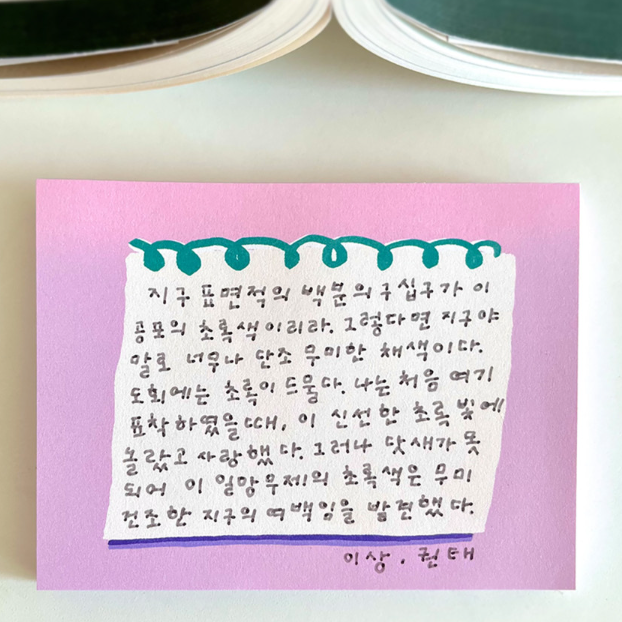 지구 표면적의 백분의구십구가 이
공포의 초록색이리라. 그렇다면 지구야
말로 너무나 단조 무미한 채색이다.
도회에는 초록이 드물다. 나는 처음 여기
표착하였을때, 이 신선한 초록빛에
놀랐고 사랑했다. 그러나 닷새가 못
되어 이 일망무제의 초록색은 무미
건조한 지구의 여백임을 발견했다.
이상, 권태